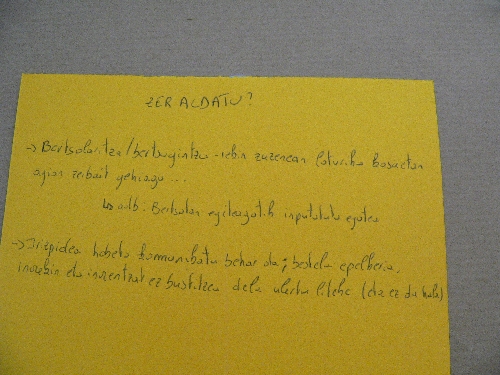 ZER ALDATU?
→ Bertsolaritza/bertsogintza-rekin zuzenean loturiko kasuetan
agian zerbait gehiago...
↳ adb. Bertsotan egiteagatik inputatuta egotea
→ Irizpidea hobeto komunikatu behar da; bestela epelkeria,
inorekin eta inorentzat ez bustitzea dela ulertu liteke (eta ez da hala)